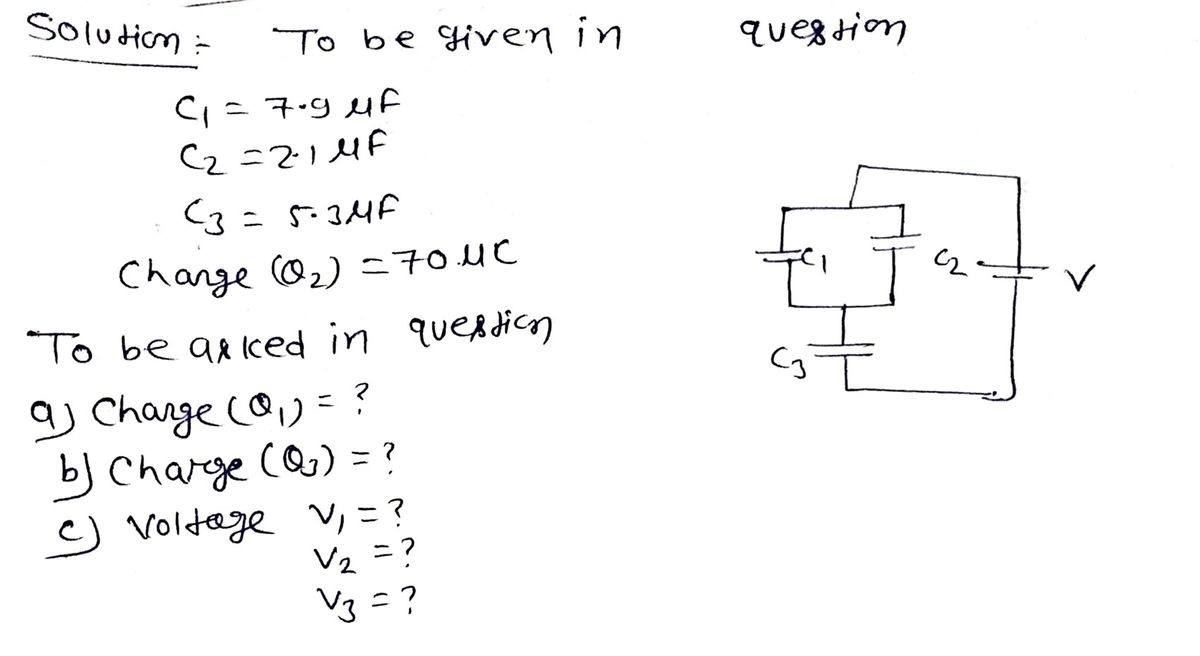 Solution :- To be given in question
C1 = 7.9 μF
C2 = 2.1 μF
C3 = 5.3 μF
Charge (Q2) = 70 μC
To be asked in question
a) Charge (Q1) = ?
b) Charge (Q3) = ?
c) Voltage V1 = ?
V2 = ?
V3 = ?
C1
C2
V
C3